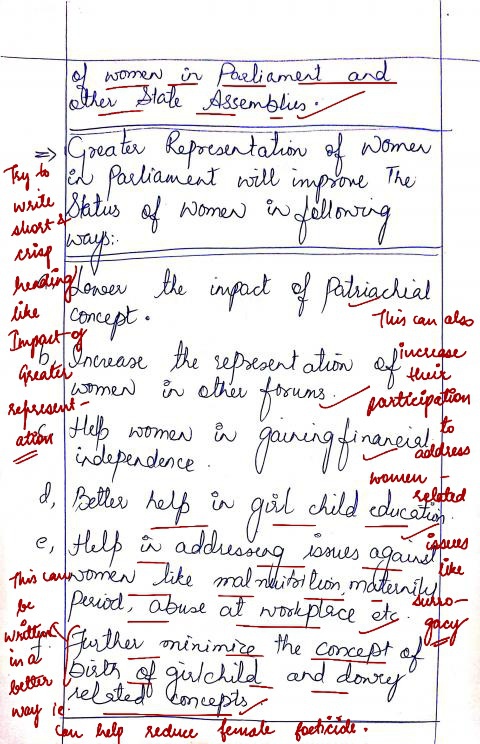 of women in Parliament and
other State Assemblies.
⇒ Greater Representation of women
in Parliament will improve The
Status of women in following
ways:.
Try to
write
short &
crisp
heading
like
Impact of
Greater
represent-
ation
Lower the impact of Patriachial
concept.
b, Increase the representation of
women in other forums.
c, Help women in gaining financial
independence.
This can also
increase
their
participation
to
address
women-
related
issues
like
surro-
gacy
d, Better help in girl child education.
e, Help in addressing issues against
women like malnuitrition, maternity
Period, abuse at workplace etc.
Further minimize the concept of
birth of girlchild and dowry
related concepts.
This can
be
written
in a
better
way ie.
can help reduce female foeticide.